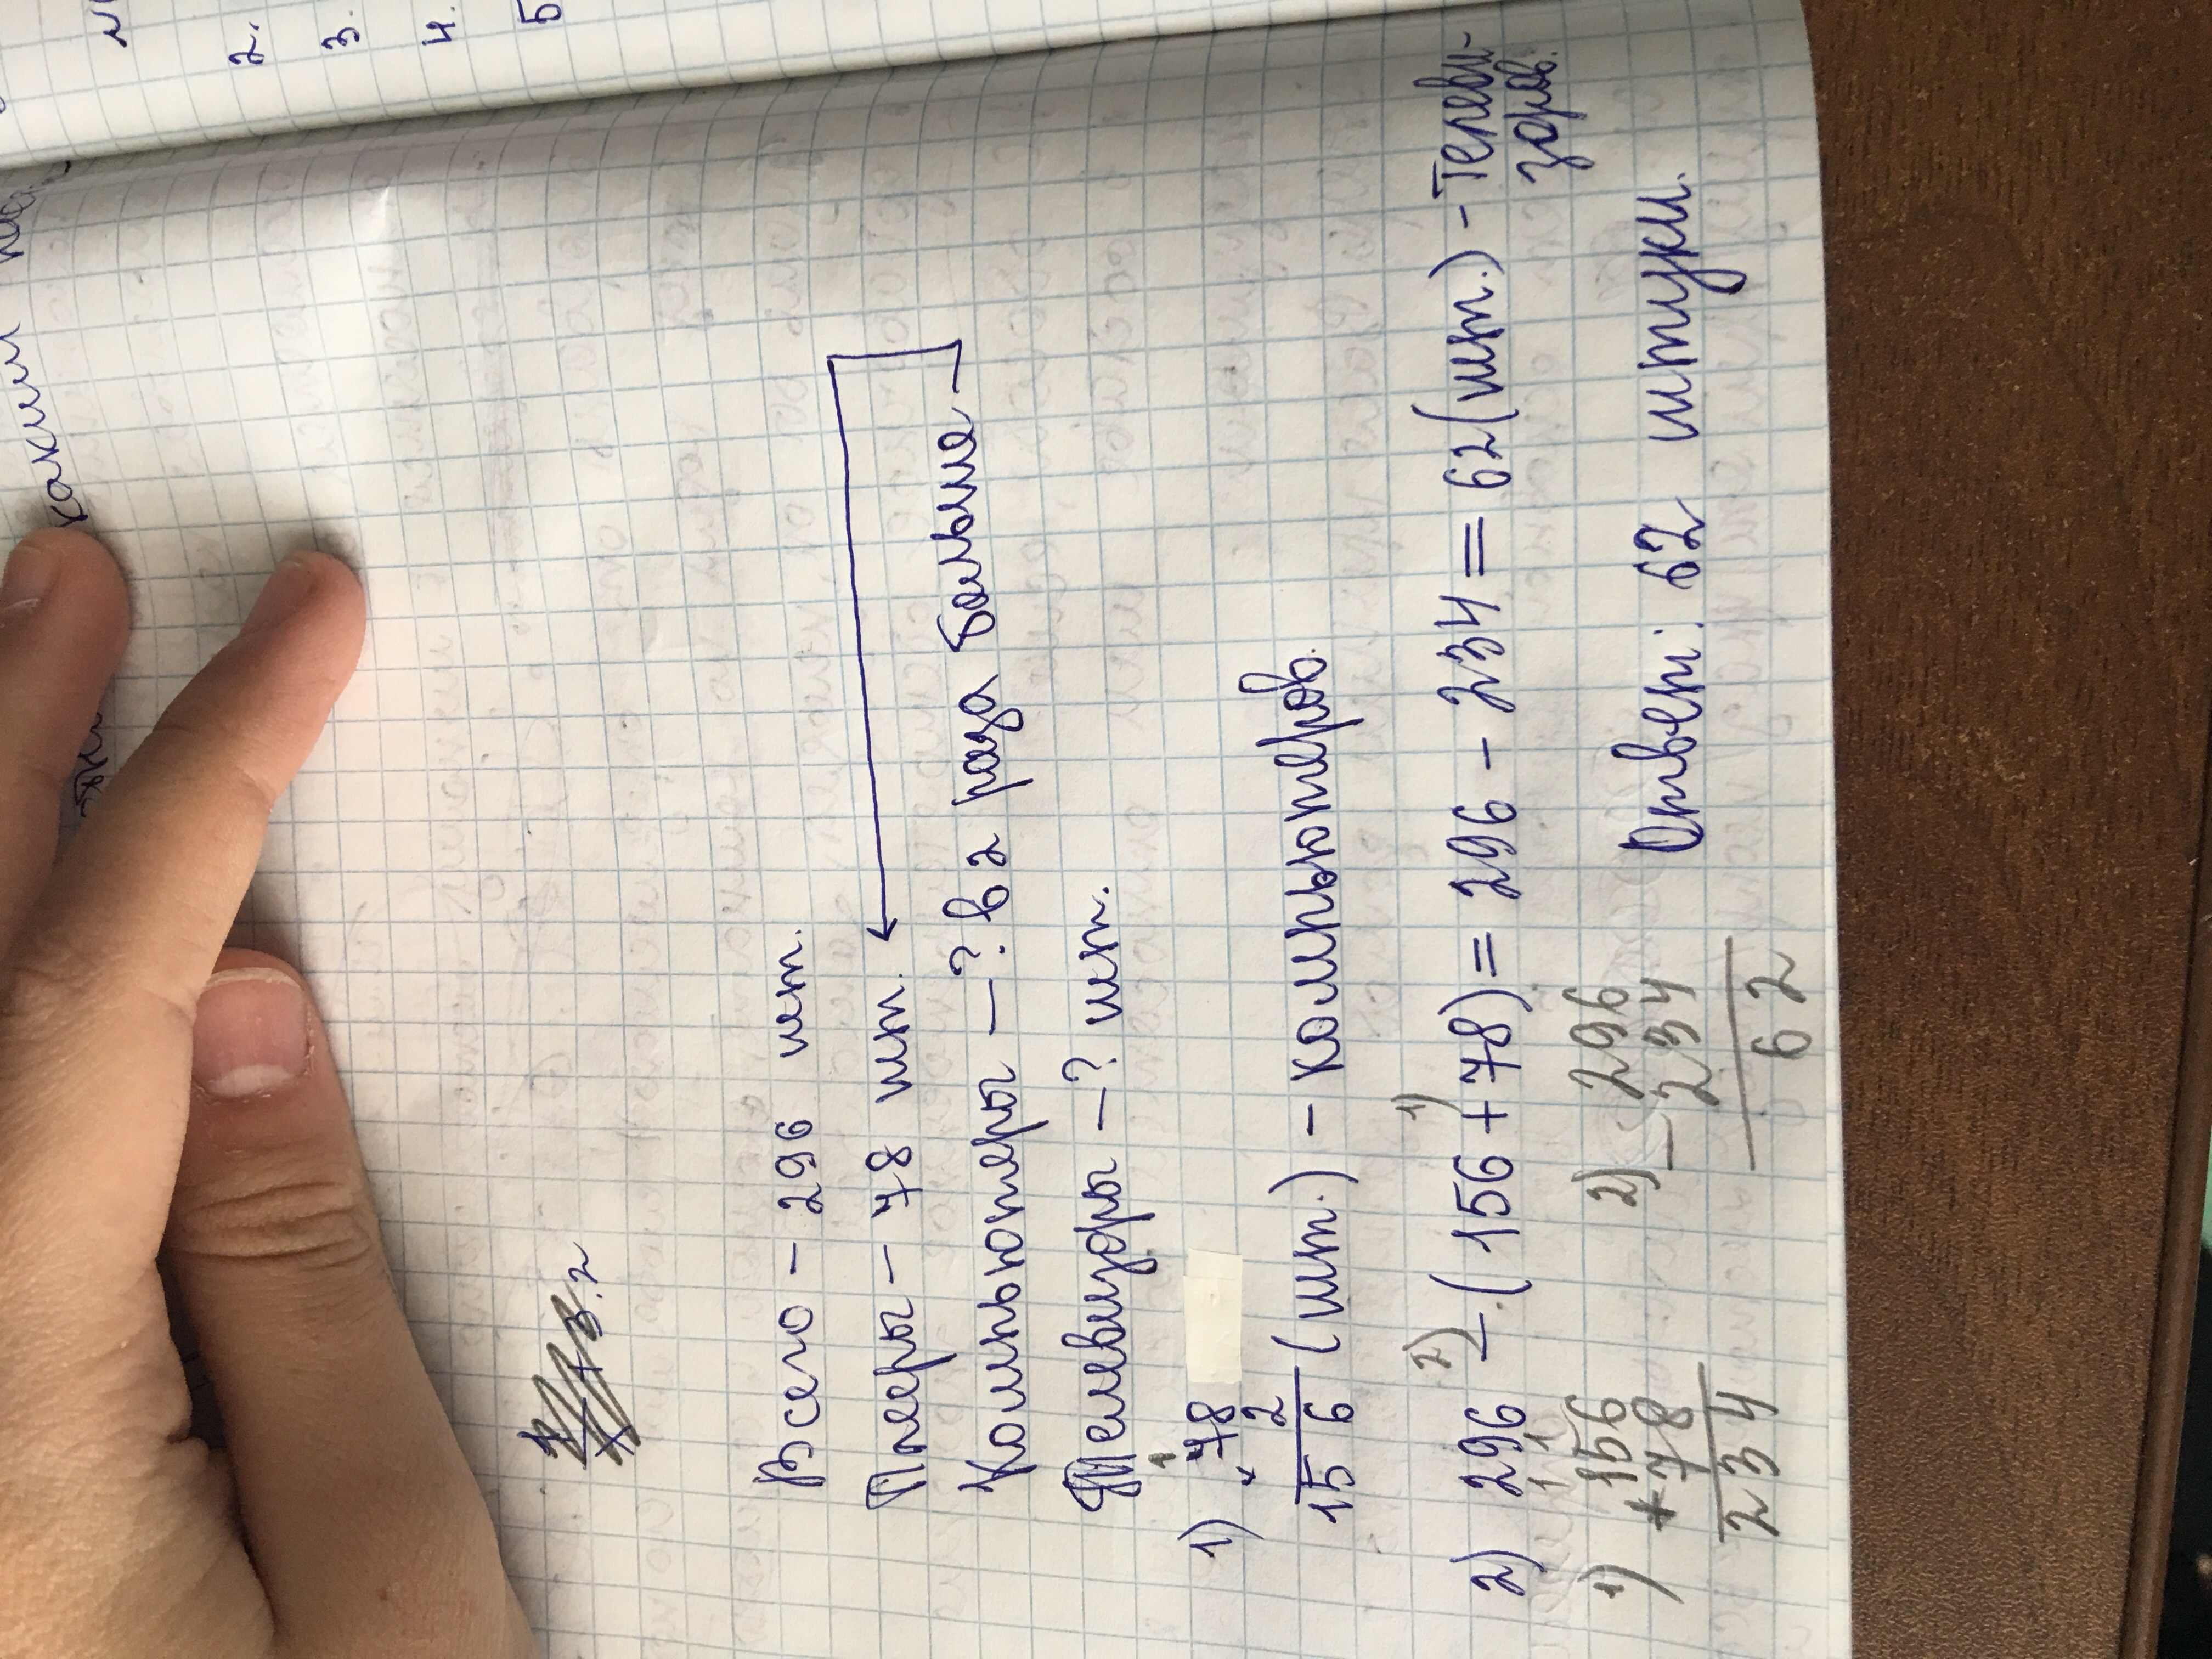 2.
3.
4.
5
какими
Всего - 296 шт.
Плееры - 78 шт.
Компьютеры - ? в 2 раза больше
Телевизоры - ? шт.
1
1) 78
× 2
15 6 (шт.) - компьютеров.
2) 1)
2) 296 - (156 + 78) = 296 - 234 = 62 (шт.) - Телеви-
зоров.
1 1
1) 156 2) 296
+ 78 - 234
234 62
Ответ: 62 штуки.